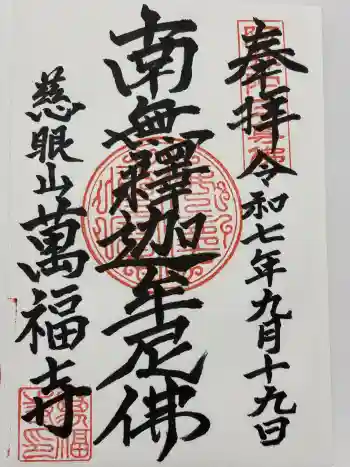 奉拝
令和七年九月十九日
南無釋迦牟尼佛
慈眼山
萬福寺